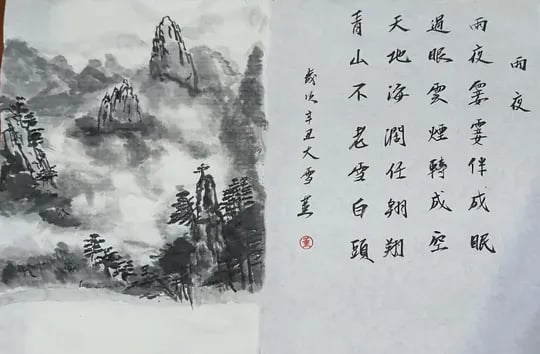 雨夜
雨夜霎霎伴成眠
過眼雲煙轉成空
天地海濶任翱翔
青山不老雪白頭
歲次辛丑大雪